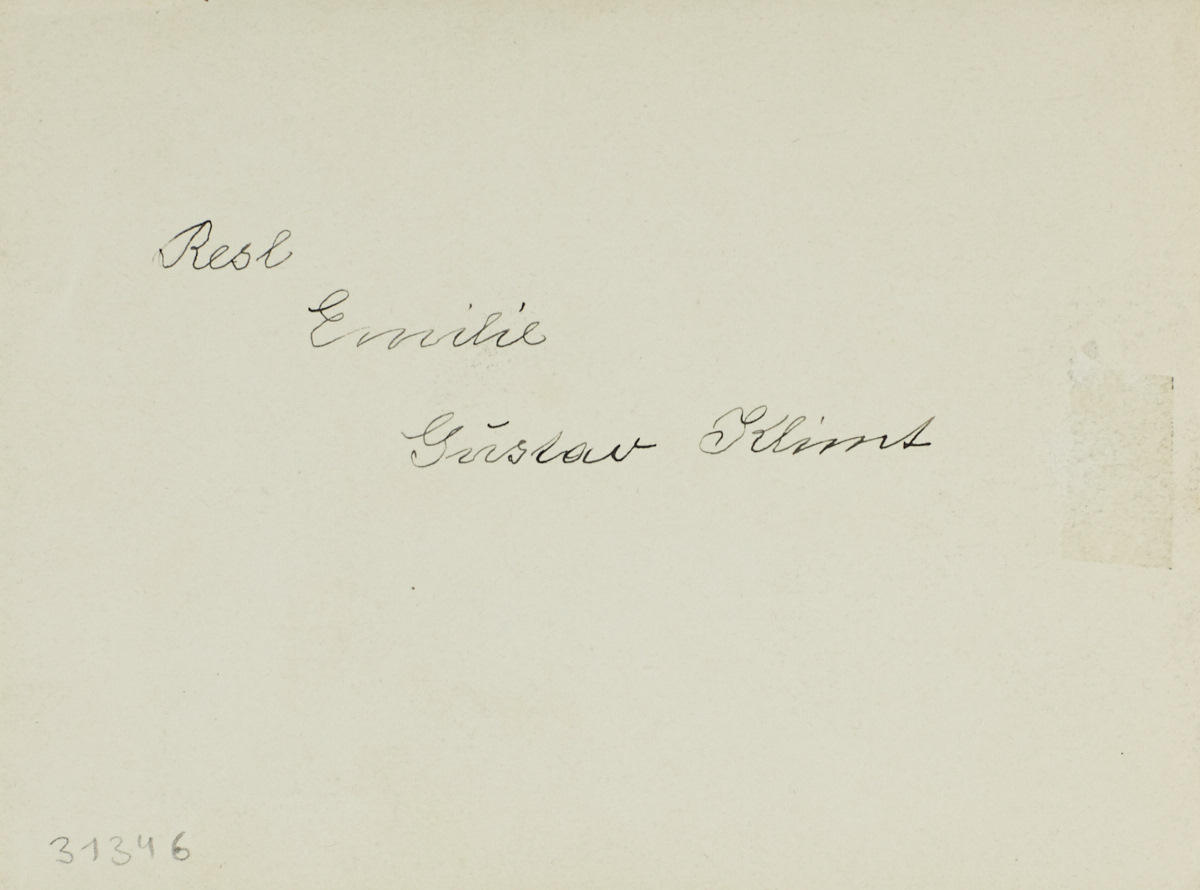 Resl
Emilie
Gustav Klimt
31346